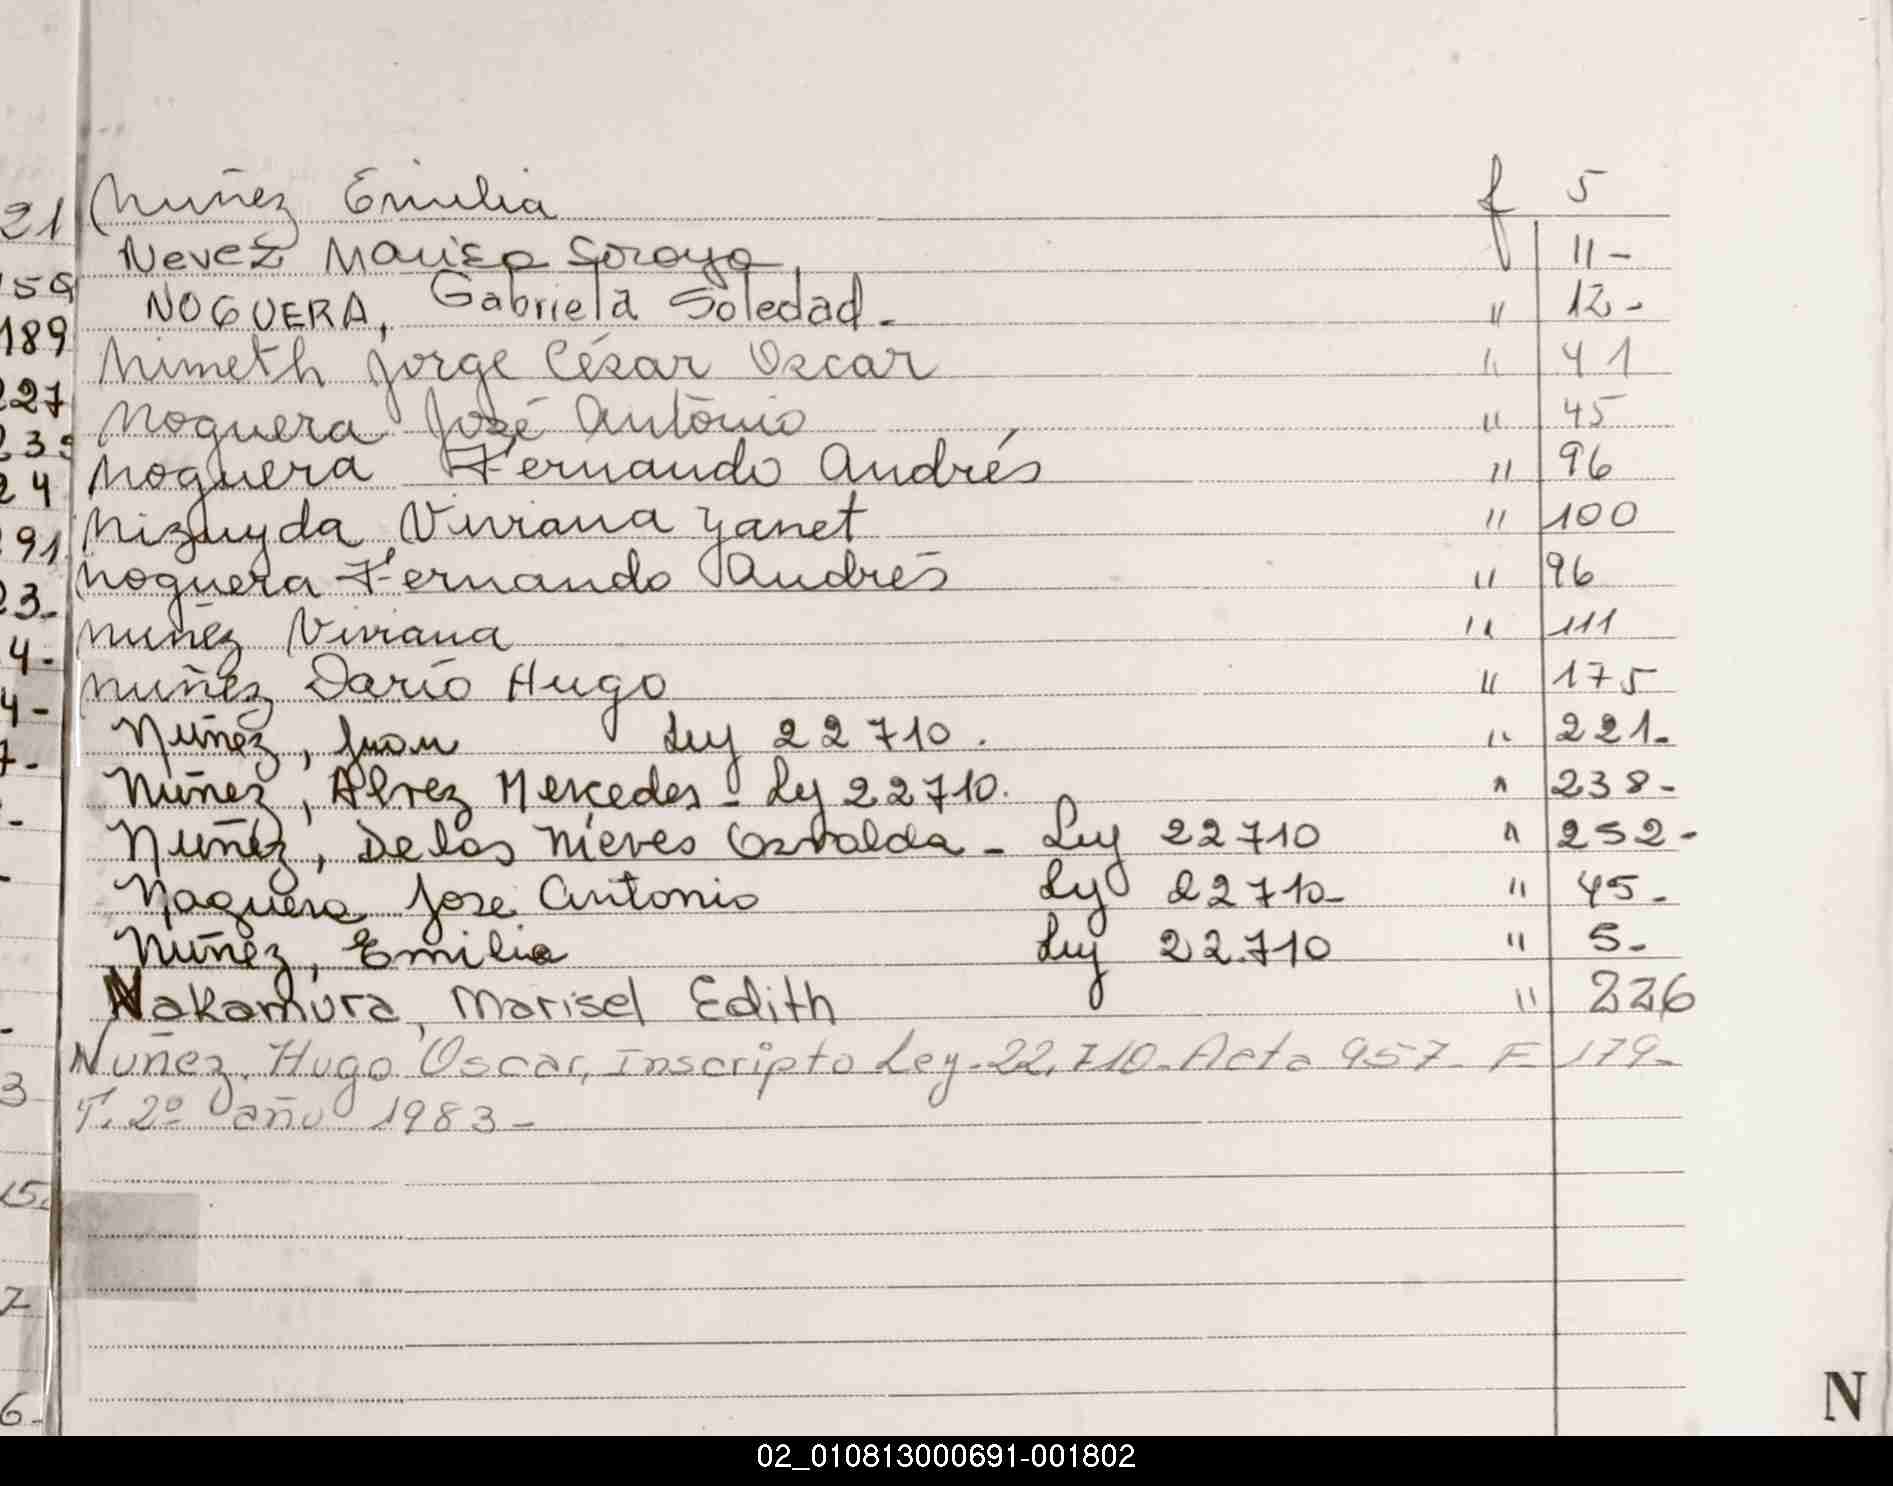 21 Nuñez Emilia f 5
Nevez Marisa Soraya 11-
159 NOGUERA, Gabriela Soledad. " 12-
189 Nimeth Jorge César Oscar " 41
227 Noguera José Antonio " 45
235 Noguera Fernando Andrés " 96
24 Nizuyda Viviana Yanet " 100
291 Noguera Fernando Andrés " 96
23- Nuñez Viviana " 111
4- Nuñez Darío Hugo " 175
4- Nuñez, Juan Ley 22710. " 221-
7- Nuñez, Alvez Mercedes - Ley 22710. " 238-
Nuñez, De las Nieves Osvalda - Ley 22710 " 252-
Noguera Jose Antonio Ley 22710- " 45-
Nuñez, Emilia Ley 22.710 " 5-
Nakamura, Marisel Edith " 226
Nuñez, Hugo Oscar, Inscripto Ley-22.710-Acta 957- F 179-
3 T. 2º año 1983-
15-
7
6- N
02_010813000691-001802